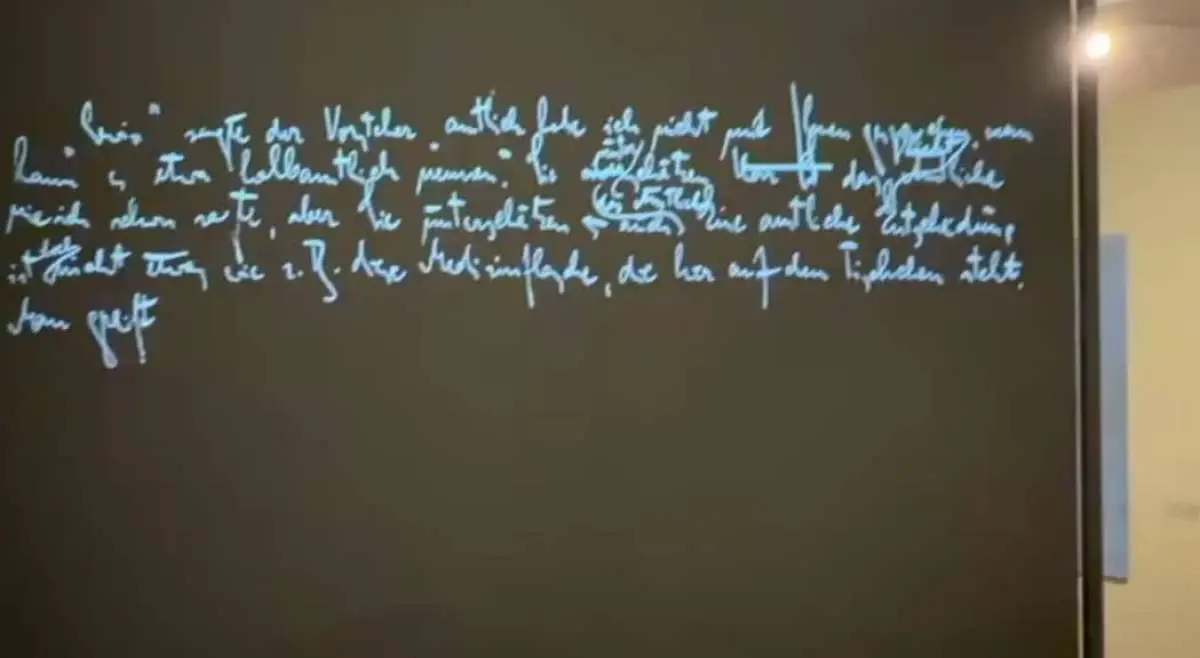 "Nein" sagte der Vorsteher "amtlich habe ich nicht mit Ihnen gesprochen, man
kann es etwa halbamtlich nennen. Sie unterschätzen das
wie ich schon sagte, aber Sie unterschätzen eine amtliche Entscheidung
ist doch nicht etwas wie z. B. diese Medizinflasche, die hier auf dem Tischchen steht.
Man greift